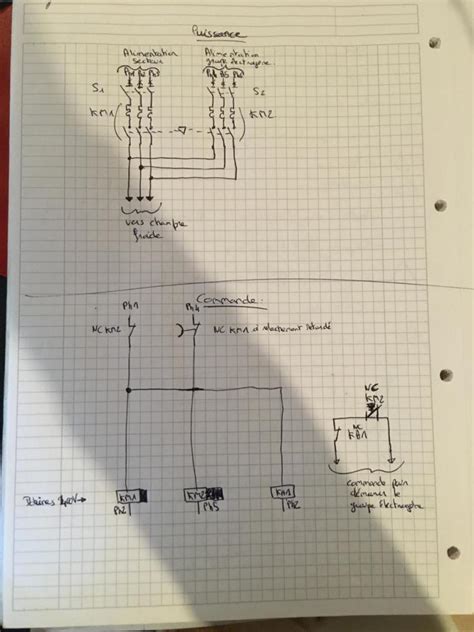 Puissance
Alimentation
Secteur
Alimentation
groupe électrogène
Ph1 Ph2 Ph3
Ph4 Ph5 Ph6
S1
S2
KM1
KM2
vers chambre
froide
Commande
Ph1
Ph4
NC KM2
NC KM1 à relachement retardé
NC
KM2
NC
KA1
KM1
KM2
KA1
Ph2
Ph5
Ph2
commande pour
démarrer le
groupe électrogène